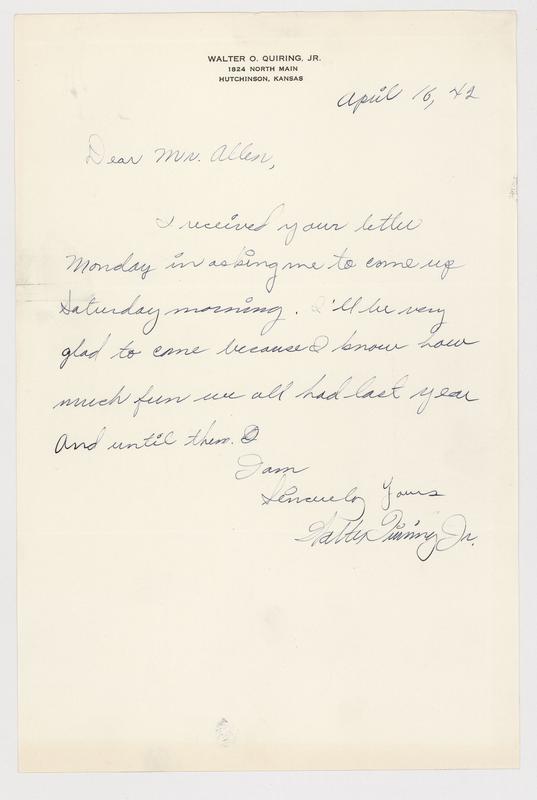 WALTER O. QUIRING, JR.
1824 NORTH MAIN
HUTCHINSON, KANSAS
April 16, 42
Dear Mr. Allen,
I received your letter
Monday in asking me to come up
Saturday morning. I'll be very
glad to come because I know how
much fun we all had last year
And until then. I
I am
Sincerely Yours
Walter Quiring Jr.